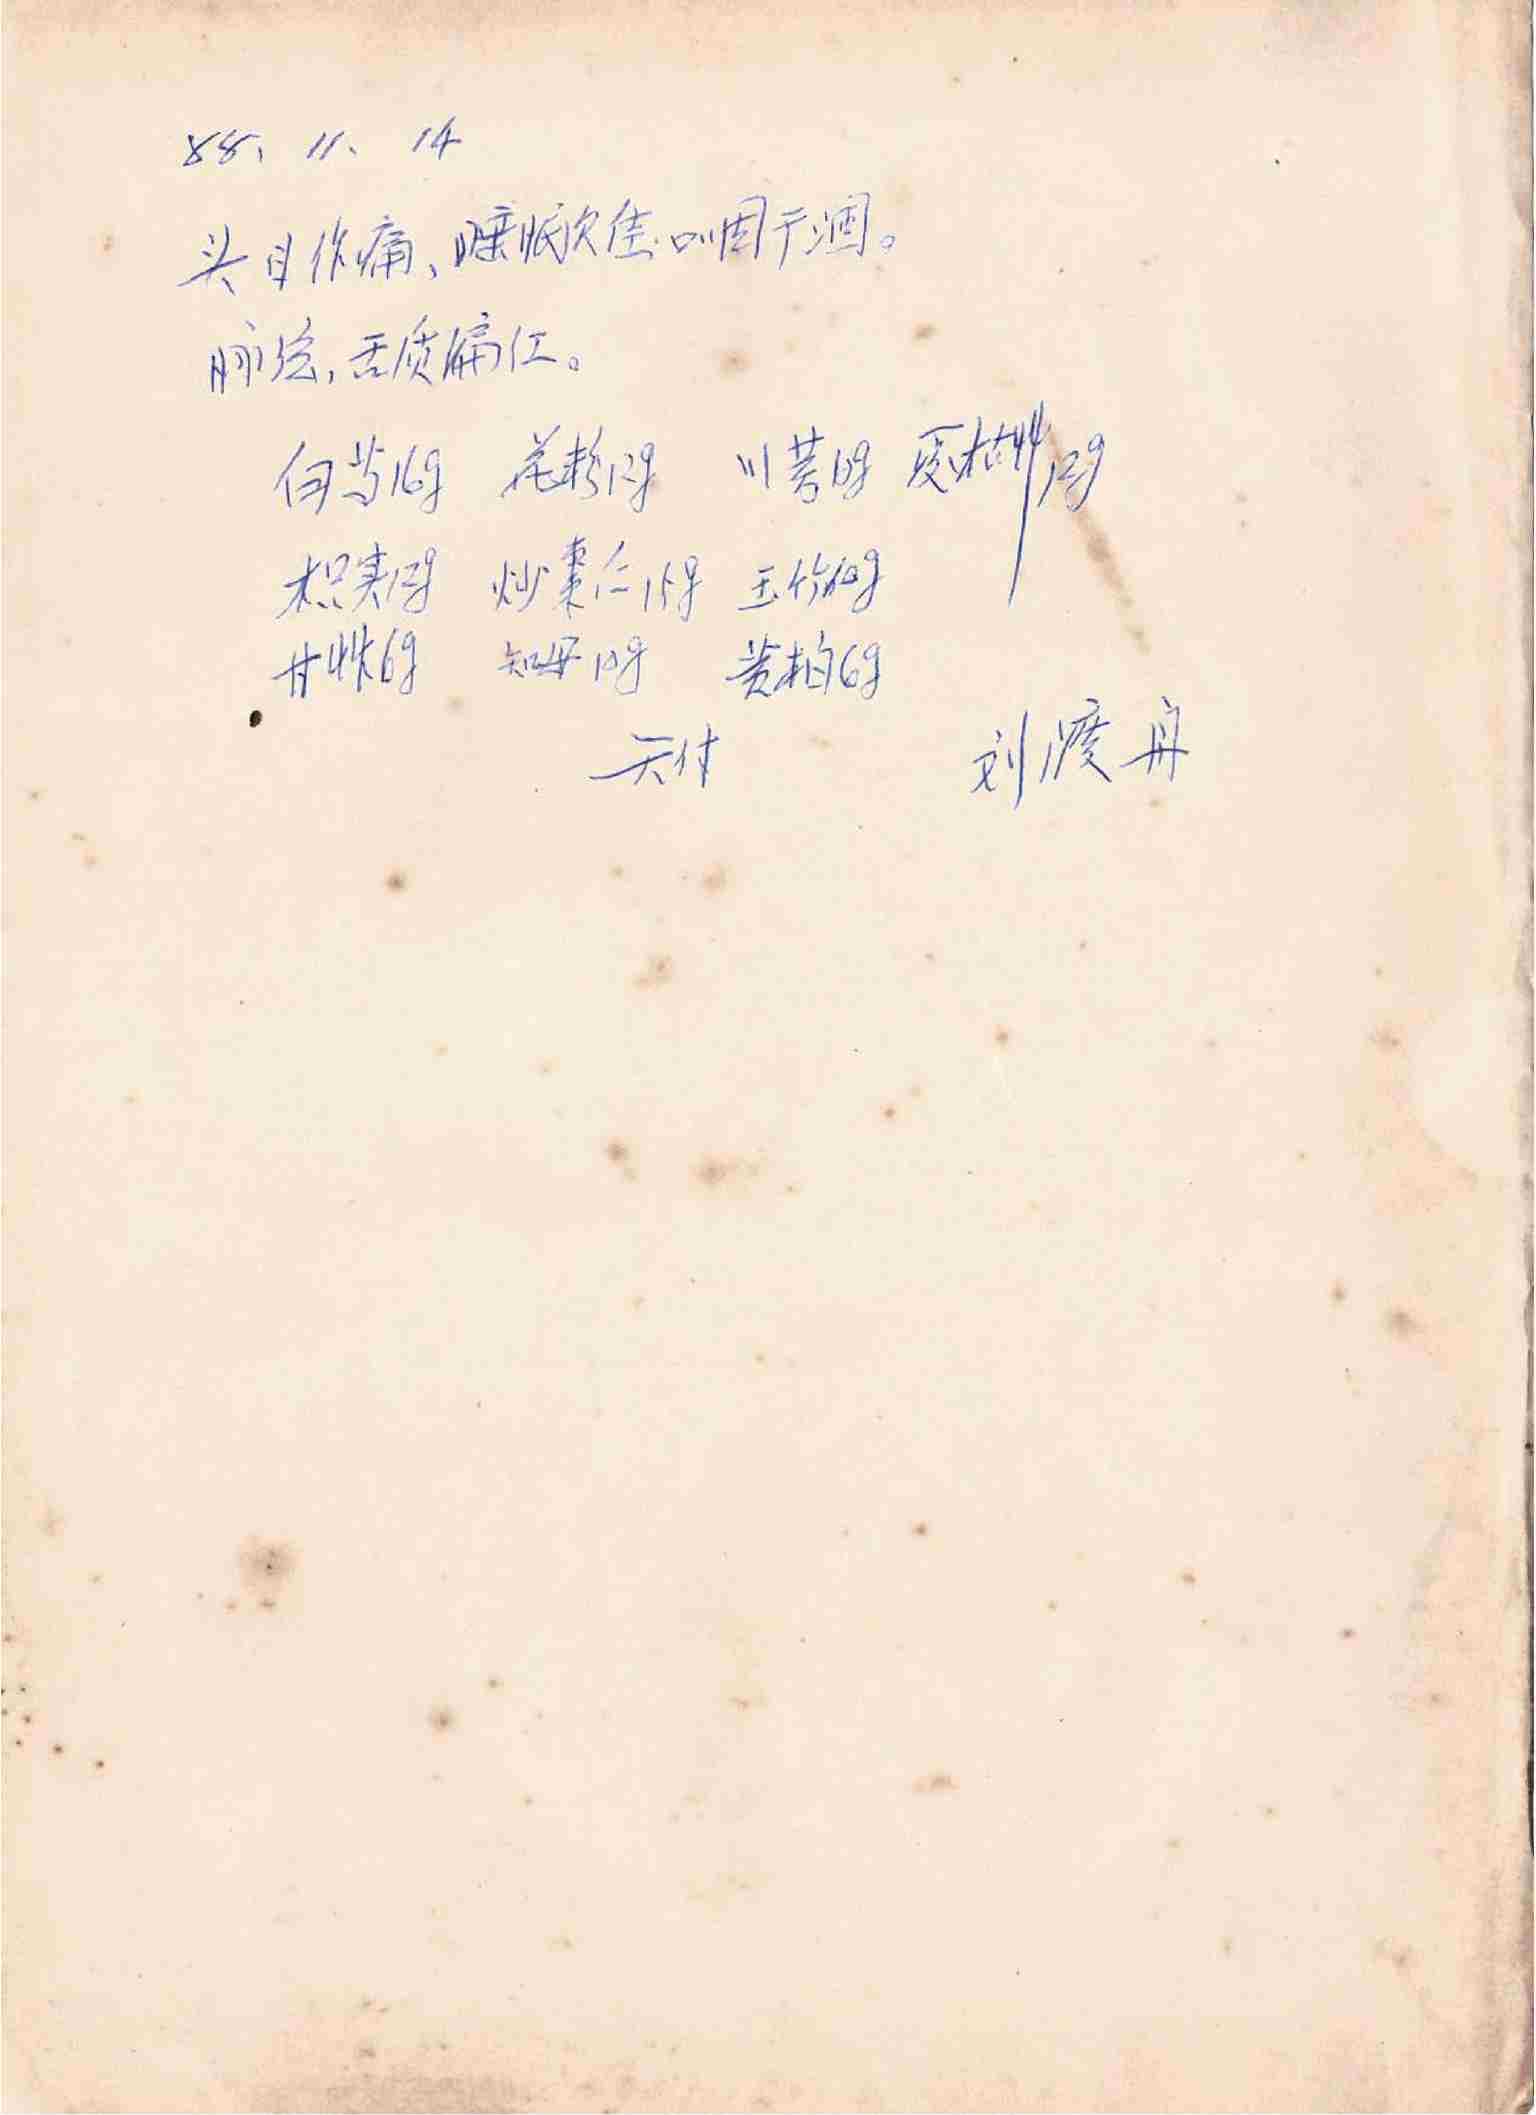 88、11、14
头目作痛、睡眠欠佳、口咽干涸。
脉弦，舌质偏红。
白芍16g 花粉12g 川芎10g 夏枯草12g
枳实12g 炒枣仁15g 玉竹10g
甘草6g 知母10g 黄柏6g
六付 刘渡舟